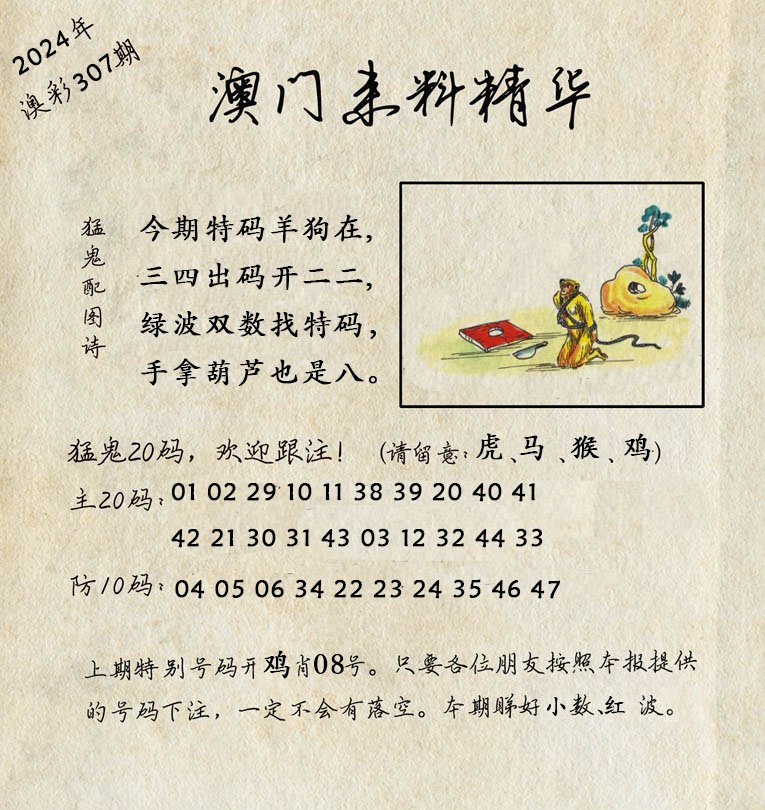 2024年
澳彩307期
澳门来料精华
猛鬼配图诗
今期特码羊狗在，
三四出码开二二，
绿波双数找特码，
手拿葫芦也是八。
猛鬼20码，欢迎跟注！（请留意：虎、马、猴、鸡）
主20码：01 02 29 10 11 38 39 20 40 41
42 21 30 31 43 03 12 32 44 33
防10码：04 05 06 34 22 23 24 35 46 47
上期特别号码开鸡肖08号。只要各位朋友按照本报提供
的号码下注，一定不会有落空。本期睇好小数、红 波。